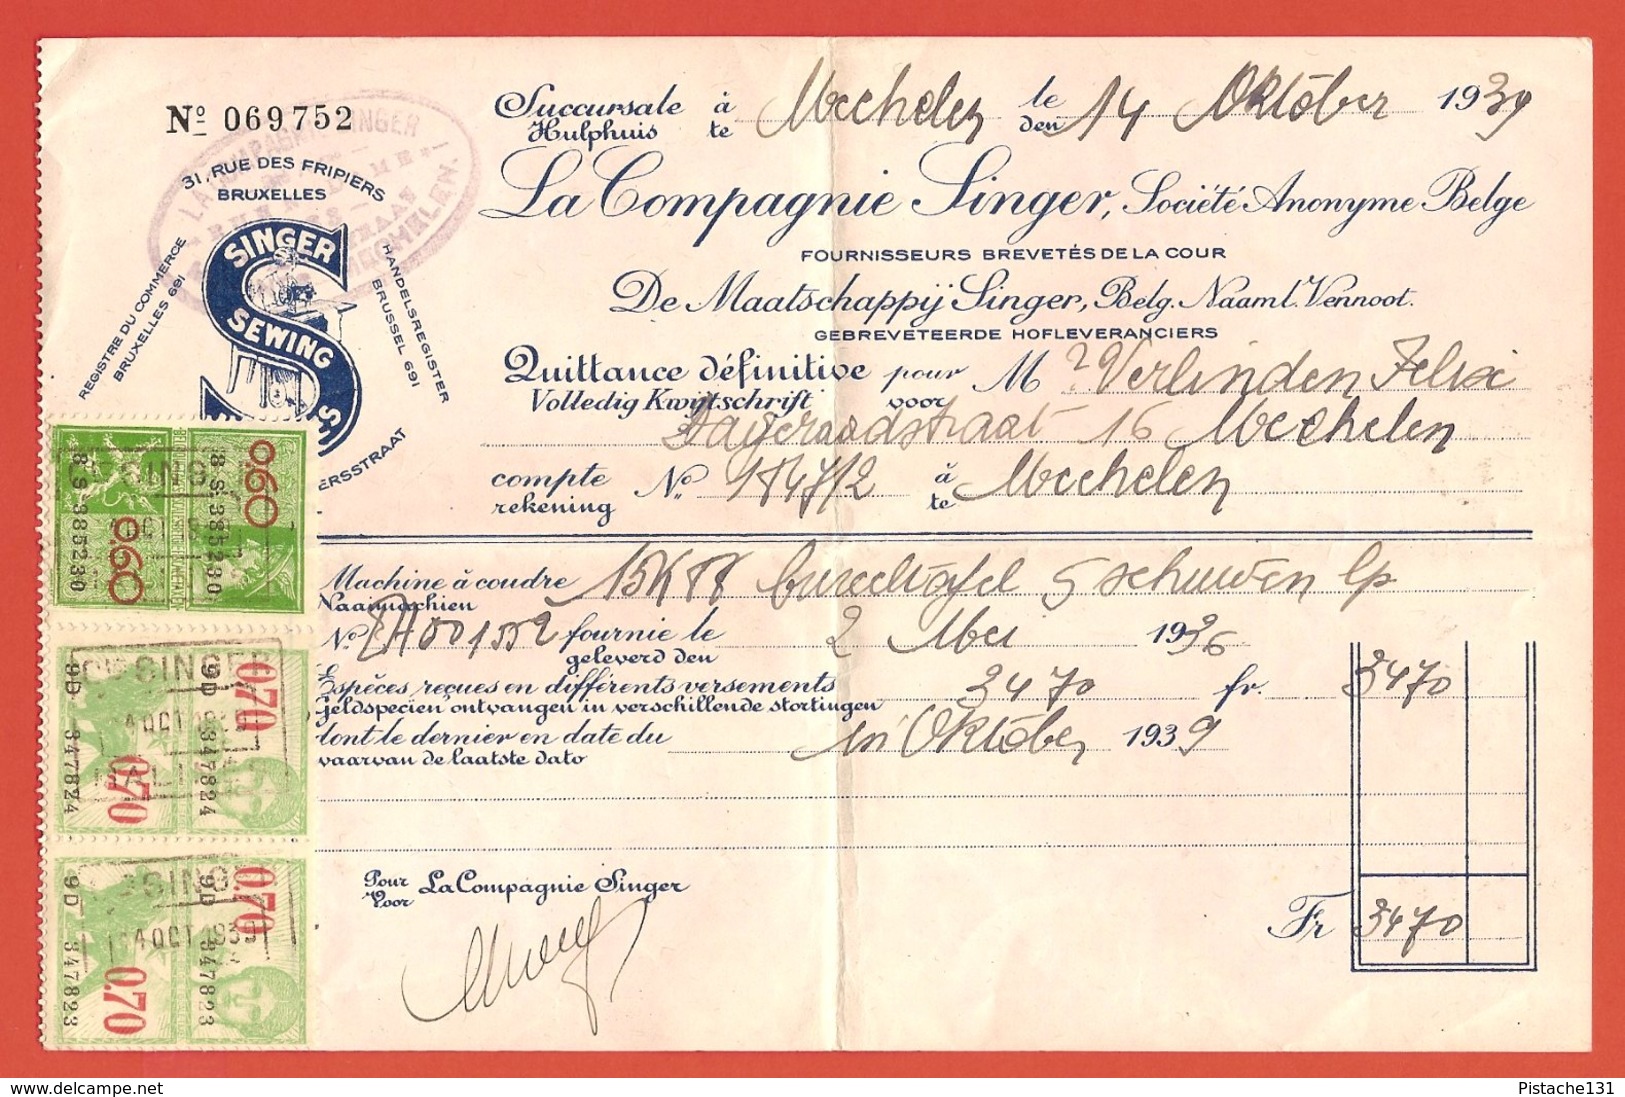 Nº 069752
31, RUE DES FRIPIERS
BRUXELLES
REGISTRE DU COMMERCE
BRUXELLES 691
HANDELSREGISTER
BRUSSEL 691
SINGER
SEWING
ERSSTRAAT
MECHELEN.
Succursale à Mechelen le 14 Oktober 1939
Hulphuis te den
La Compagnie Singer, Société Anonyme Belge
FOURNISSEURS BREVETÉS DE LA COUR
De Maatschappij Singer, Belg. Naaml. Vennoot.
GEBREVETEERDE HOFLEVERANCIERS
Quittance définitive pour M Verlinden Felix
Volledig Kwijtschrift voor
Dageraadstraat 16 Mechelen
compte Nº à Mechelen
rekening te
Machine à coudre 15K 5 schuiven
Naaimachien
Nº fournie le 2 Mei 1936
geleverd den
Espèces reçues en différents versements 3470 fr. 3470
Geldspeciën ontvangen in verschillende stortingen
dont le dernier en date du in Oktober 1939
waarvan de laatste dato
Pour La Compagnie Singer
Voor
Fr 3470
0.60
0.60
8 S 385230
8 S 385230
Cie SINGER
0,70
0,70
9D 347824
9D 347824
4 OCT 193
0,70
0,70
9D 347823
9D 347823
4 OCT 193
delcampe.net
Pistache131